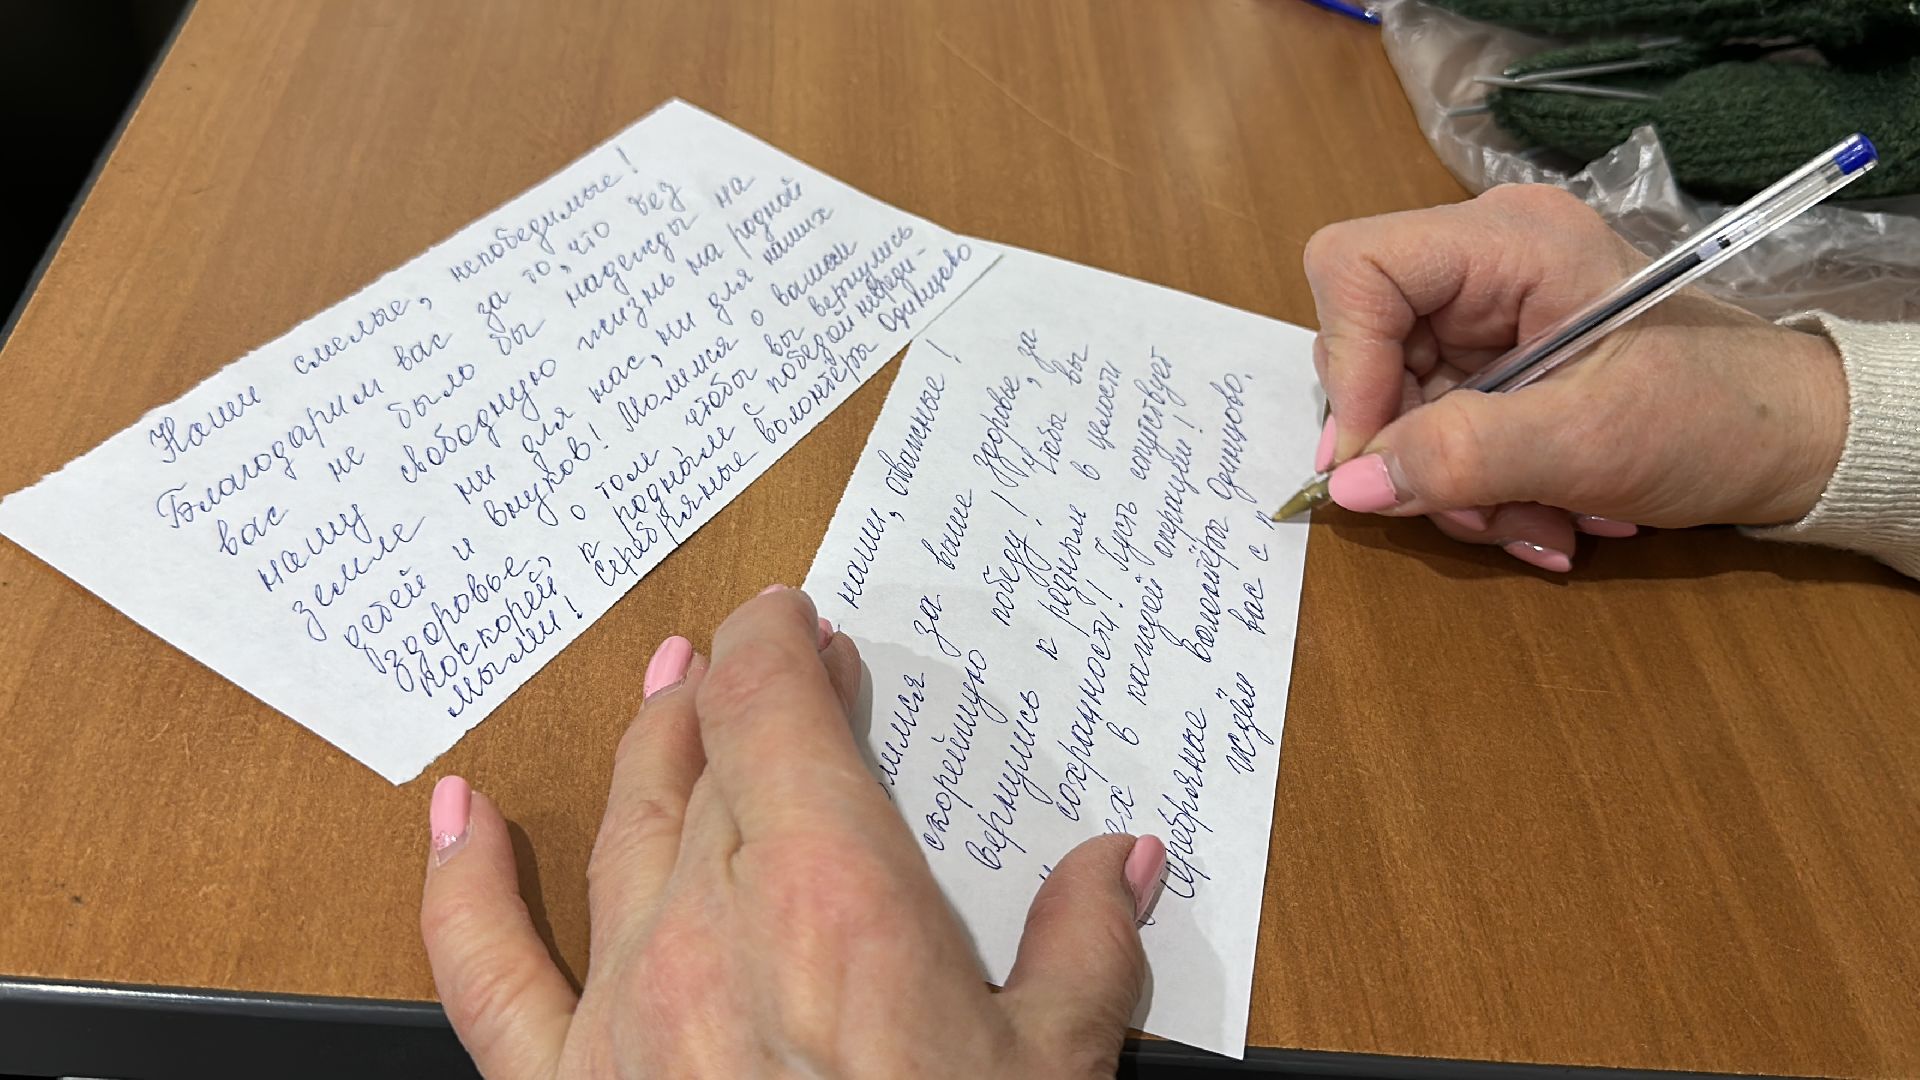 Наши смелые, непобедимые!
Благодарим вас за то, что без
вас не было бы надежды на
нашу свободную жизнь на родной
земле ни для нас, ни для наших
детей и внуков! Молимся о вашем
здоровье, о том чтобы вы вернулись
поскорей к родным с победой невреди-
мыми! Серебряные волонтёры Одинцово
наши, отважные!
милися за ваше здоровье, за
скорейшую победу! Чтобы вы
вернулись к родным в целости
и сохранности! Пусть сопутствует
ех в каждой операции!
Серебряные волонтёры Одинцово.
Ждём вас с п